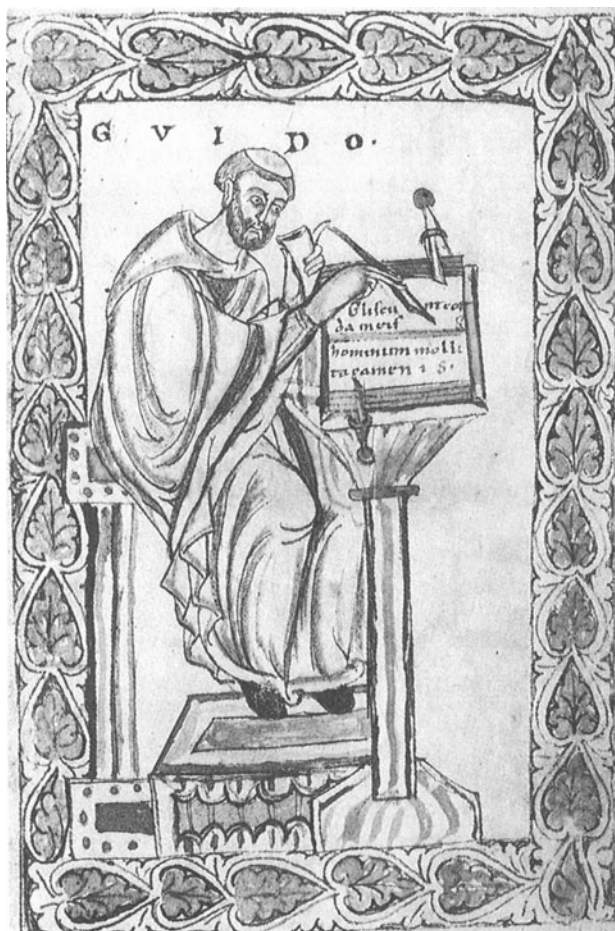 G V I D O ·
Gliscu nt cor
da meis
hominum molli
ta camen i s ·